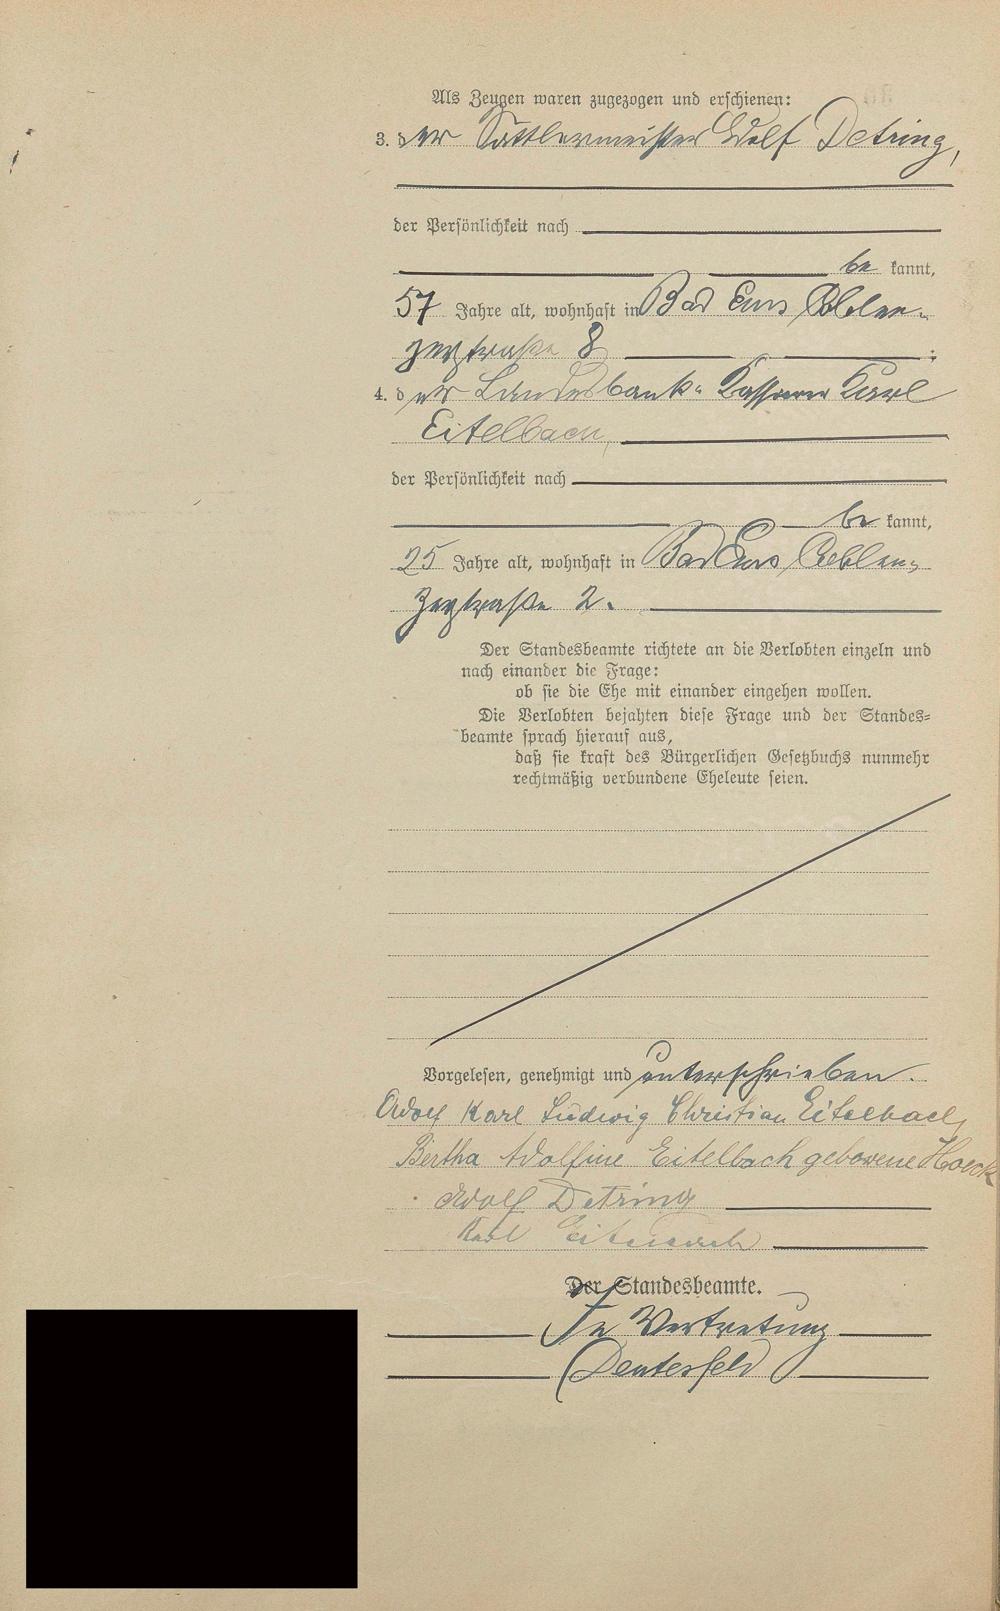 Als Zeugen waren zugezogen und erschienen:
3. der Sattlermeister Adolf Detring,
der Persönlichkeit nach
be kannt,
57 Jahre alt, wohnhaft in Bad Ems, Coblen-
zerstraße 8
4. der Landesbank-Kassierer Karl
Eitelbach,
der Persönlichkeit nach
be kannt,
25 Jahre alt, wohnhaft in Bad Ems, Coblen-
zerstraße 2.
Der Standesbeamte richtete an die Verlobten einzeln und
nach einander die Frage:
ob sie die Ehe mit einander eingehen wollen.
Die Verlobten bejahten diese Frage und der Standes-
beamte sprach hierauf aus,
daß sie kraft des Bürgerlichen Gesetzbuchs nunmehr
rechtmäßig verbundene Eheleute seien.
Vorgelesen, genehmigt und unterschrieben.
Adolf Karl Ludwig Christian Eitelbach
Bertha Adolfine Eitelbach geborene Hoeck
Adolf Detring
Karl Eitelbach
Der Standesbeamte.
In Vertretung